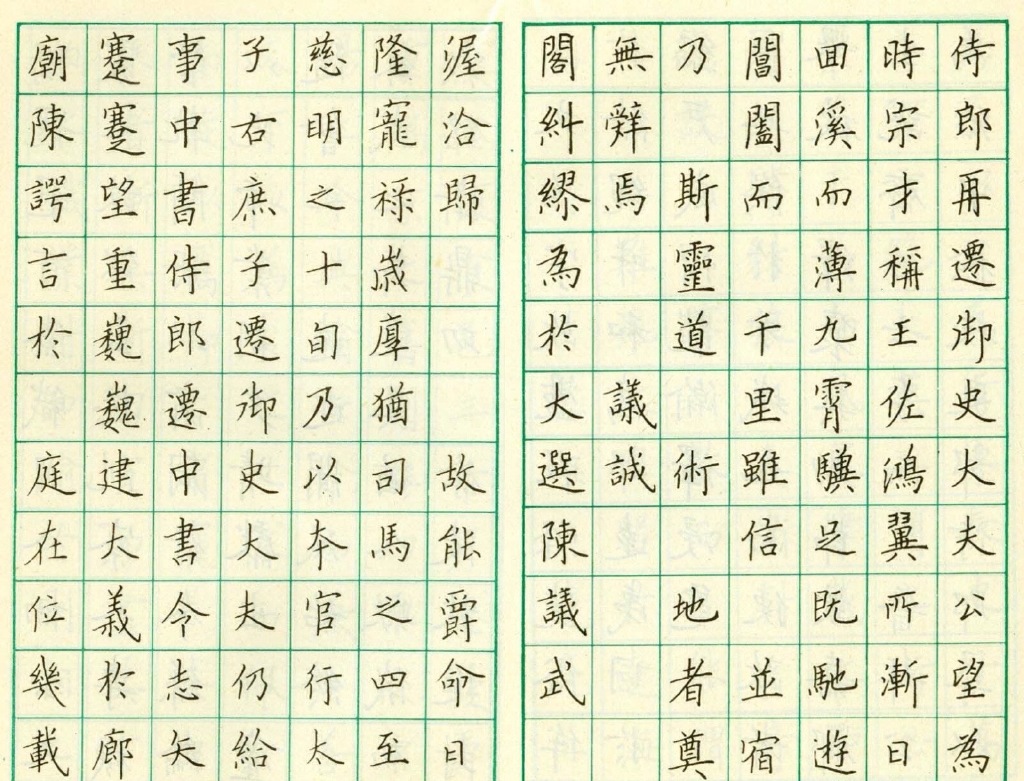 侍郎再遷御史大夫公望為
時宗才稱王佐鴻翼所漸日
囬溪而薄九霄驥足既馳遊
閶闔而千里雖信並宿
乃斯靈道術地者奠
無辭焉議誠
閣糾繆為於大選陳議武
渥洽歸故能爵命日
隆寵祿歲厚猶司馬之四至
慈明之十旬乃以本官行太
子右庶子遷御史大夫仍給
事中書侍郎遷中書令志矢
蹇蹇望重巍巍建大義於廊
廟陳諤言於庭在位幾載